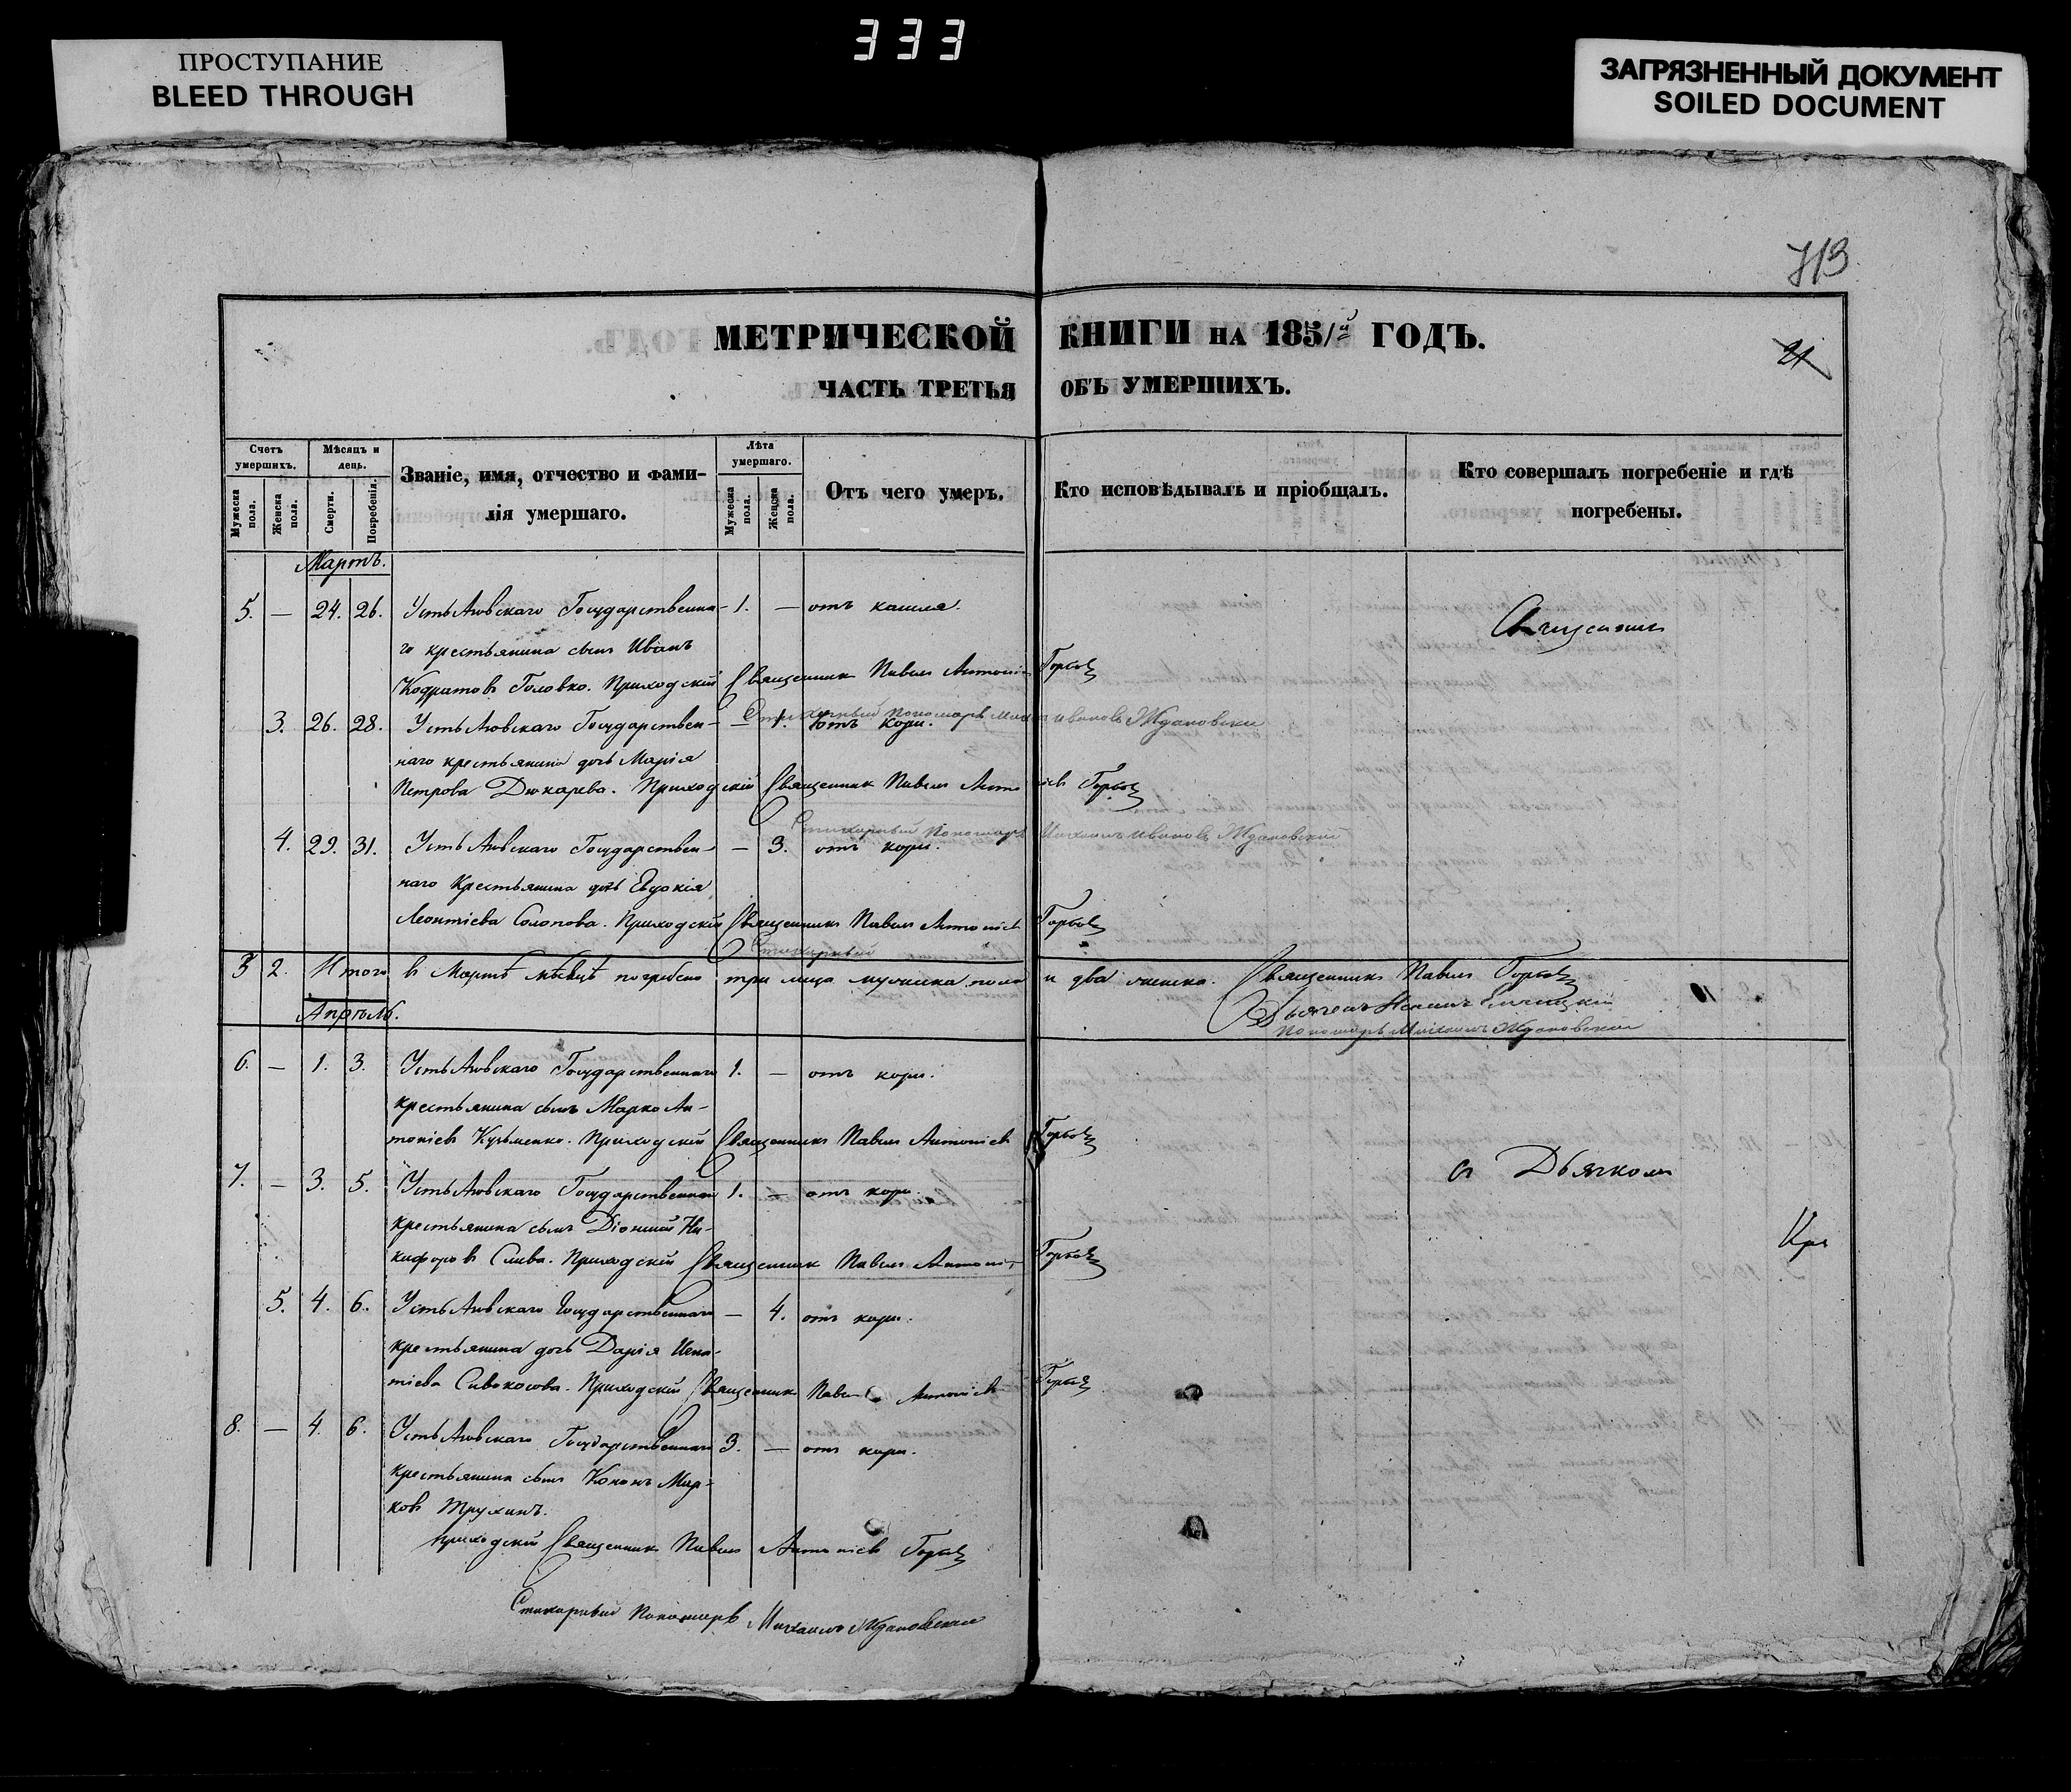 333
ПРОСТУПАНИЕ
BLEED THROUGH
ЗАГРЯЗНЕННЫЙ ДОКУМЕНТ
SOILED DOCUMENT
713
МЕТРИЧЕСКОЙ КНИГИ НА 1851й ГОДЪ.
21
ЧАСТЬ ТРЕТЬЯ ОБЪ УМЕРШИХЪ.
Счетъ умершихъ.
Мужеска пола.
Женска пола.
Мѣсяцъ и день.
Смерти.
Погребенія.
Званіе, имя, отчество и фами-
лія умершаго.
Лѣта умершаго.
Мужеска пола.
Женска пола.
Отъ чего умеръ.
Кто исповѣдывалъ и пріобщалъ.
Кто совершалъ погребеніе и гдѣ
погребены.
Мартъ.
5. — 24. 26. Усть Аювскаго Государственна- 1. — отъ кашля.
го крестьянина сынъ Иванъ
Кодратовъ Головко. Приходскій Священникъ Павелъ Антоніев Горбов
Стихарный Пономарь Михаилъ Ивановъ Ждановскій
3. 26. 28. Усть Аювскаго Государствен- — 1. отъ кори.
наго крестьянина дочь Марія
Петрова Дюкарева. Приходскій Священник Павелъ Антоніевъ Горбов
Стихарный Пономарь Михаилъ Ивановъ Ждановскій
4. 29. 31. Усть Аювскаго Государствен- — 3. отъ кори.
наго Крестьянина дочь Евдокія
Леонтіева Солопова. Приходскій Священникъ Павелъ Антоніевъ Горбов
Стихарный
3 2. Итого в Мартѣ мѣсяцѣ погребено три лица мужеска пола и два женска. Священникъ Павелъ Горбов
Дьячекъ
Пономарь Михаилъ Ждановскій
Апрѣль.
6. — 1. 3. Усть Аювскаго Государственнаго 1. — отъ кори.
крестьянина сынъ Марко Ан-
тоніевъ Кузьменко. Приходскій Священникъ Павелъ Антоніевъ Горбов
7. — 3. 5. Усть Аювскаго Государственнаго 1. — отъ кори.
крестьянина сынъ Діонисій Ни-
кифоровъ Слива. Приходскій Священник Павелъ Антоніев Горбов
съ Дьячкомъ
5. 4. 6. Усть Аювскаго Государственнаго — 4. отъ кори.
крестьянина дочь Дарія Игна-
тіева Сивокосова. Приходскій Священникъ Павелъ Антоніевъ Горбов
8. — 4. 6. Усть Аювскаго Государственнаго 3. — отъ кори.
крестьянина сынъ Кононъ Мар-
ковъ Трухинъ.
Приходскій Священникъ Павелъ Антоніевъ Горбов
Стихарный Пономарь Михаилъ Ждановскій